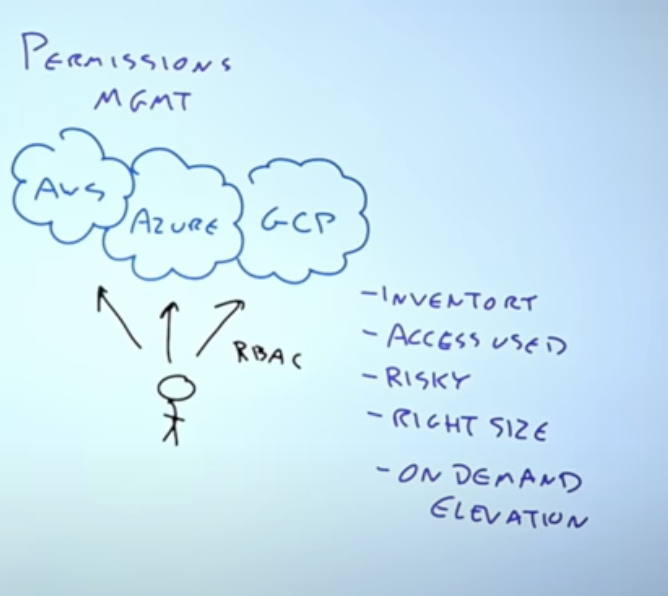 PERMISSIONS
MGMT
AWS
AZURE
GCP
RBAC
- INVENTORY
- ACCESS USED
- RISKY
- RIGHT SIZE
- ON DEMAND
ELEVATION